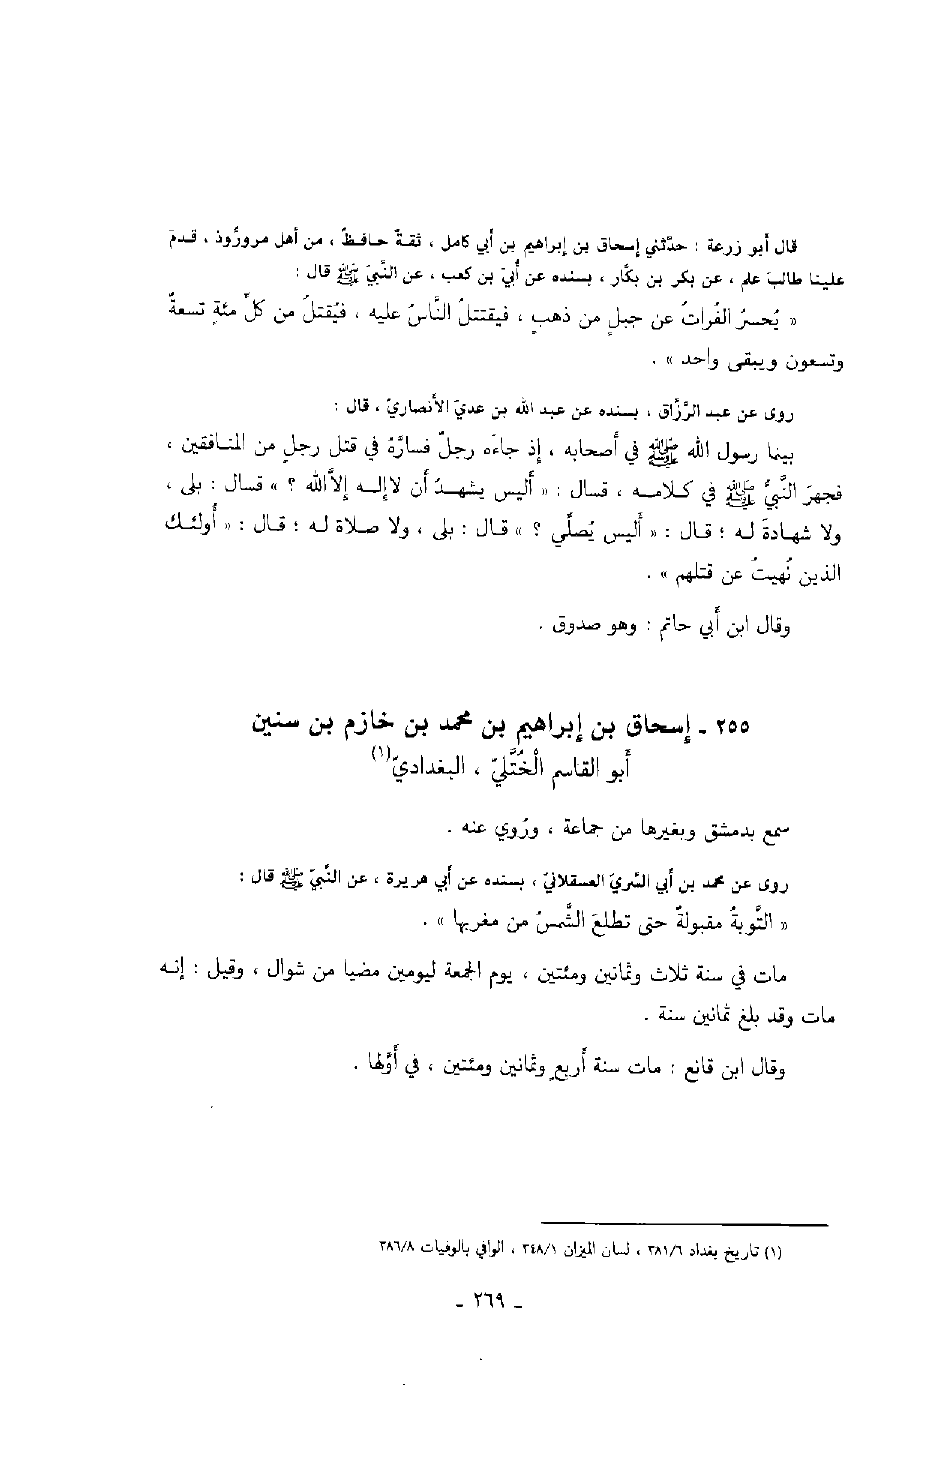 قال أبو زرعة : حدّثني إسحاق بن إبراهيم بن أبي كامل ، ثقةٌ حافظٌ ، من أهل مرورُّوذ ، قدمَ
علينا طالبَ علم ، عن بكر بن بكَّار ، بسنده عن أُبيّ بن كعب ، عن النَّبيّ ﷺ قال :
« يُحسرُ الفُراتُ عن جبلٍ من ذهبٍ ، فيقتتلُ النَّاسُ عليه ، فيُقتلُ من كلِّ مئةٍ تسعةٌ
وتسعون ويبقى واحد » .
روى عن عبد الرَّزَّاق ، بسنده عن عبد الله بن عديّ الأنصاريّ ، قال :
بينما رسول الله ﷺ في أصحابه ، إذ جاءَه رجلٌ فسارَّهُ في قتل رجلٍ من المنافقين ،
فجهرَ النَّبيُّ ﷺ في كلامه ، قسال : « أليس يشهدُ أن لاإله إلاَّالله ؟ » قسال : بلى ،
ولا شهادةَ له ؛ قال : « أليس يُصلِّي ؟ » قال : بلى ، ولا صلاة له ؛ قال : « أُولئك
الذين نُهيتُ عن قتلهم » .
وقال ابن أبي حاتم : وهو صدوق .
٢٥٥ ـ إسحاق بن إبراهيم بن محمد بن خازم بن سنين
أبو القاسم الْخُتَّليّ ، البغداديّ(١)
سمع بدمشق وبغيرها من جماعة ، ورُوي عنه .
روى عن محمد بن أبي السَّريّ العسقلانيّ ، بسنده عن أبي هريرة ، عن النَّبيّ ﷺ قال :
« التَّوبةُ مقبولةٌ حتى تطلعَ الشَّمسُ من مغربها » .
مات في سنة ثلاث وثمانين ومئتين ، يوم الجمعة ليومين مضيا من شوال ، وقيل : إنه
مات وقد بلغ ثمانين سنة .
وقال ابن قانع : مات سنة أربعٍ وثمانين ومئتين ، في أوَّلها .
(١) تاريخ بغداد ٣٨١/٦ ، لسان الميزان ٣٤٨/١ ، الوافي بالوفيات ٣٨٦/٨
ـ ٢٦٩ ـ